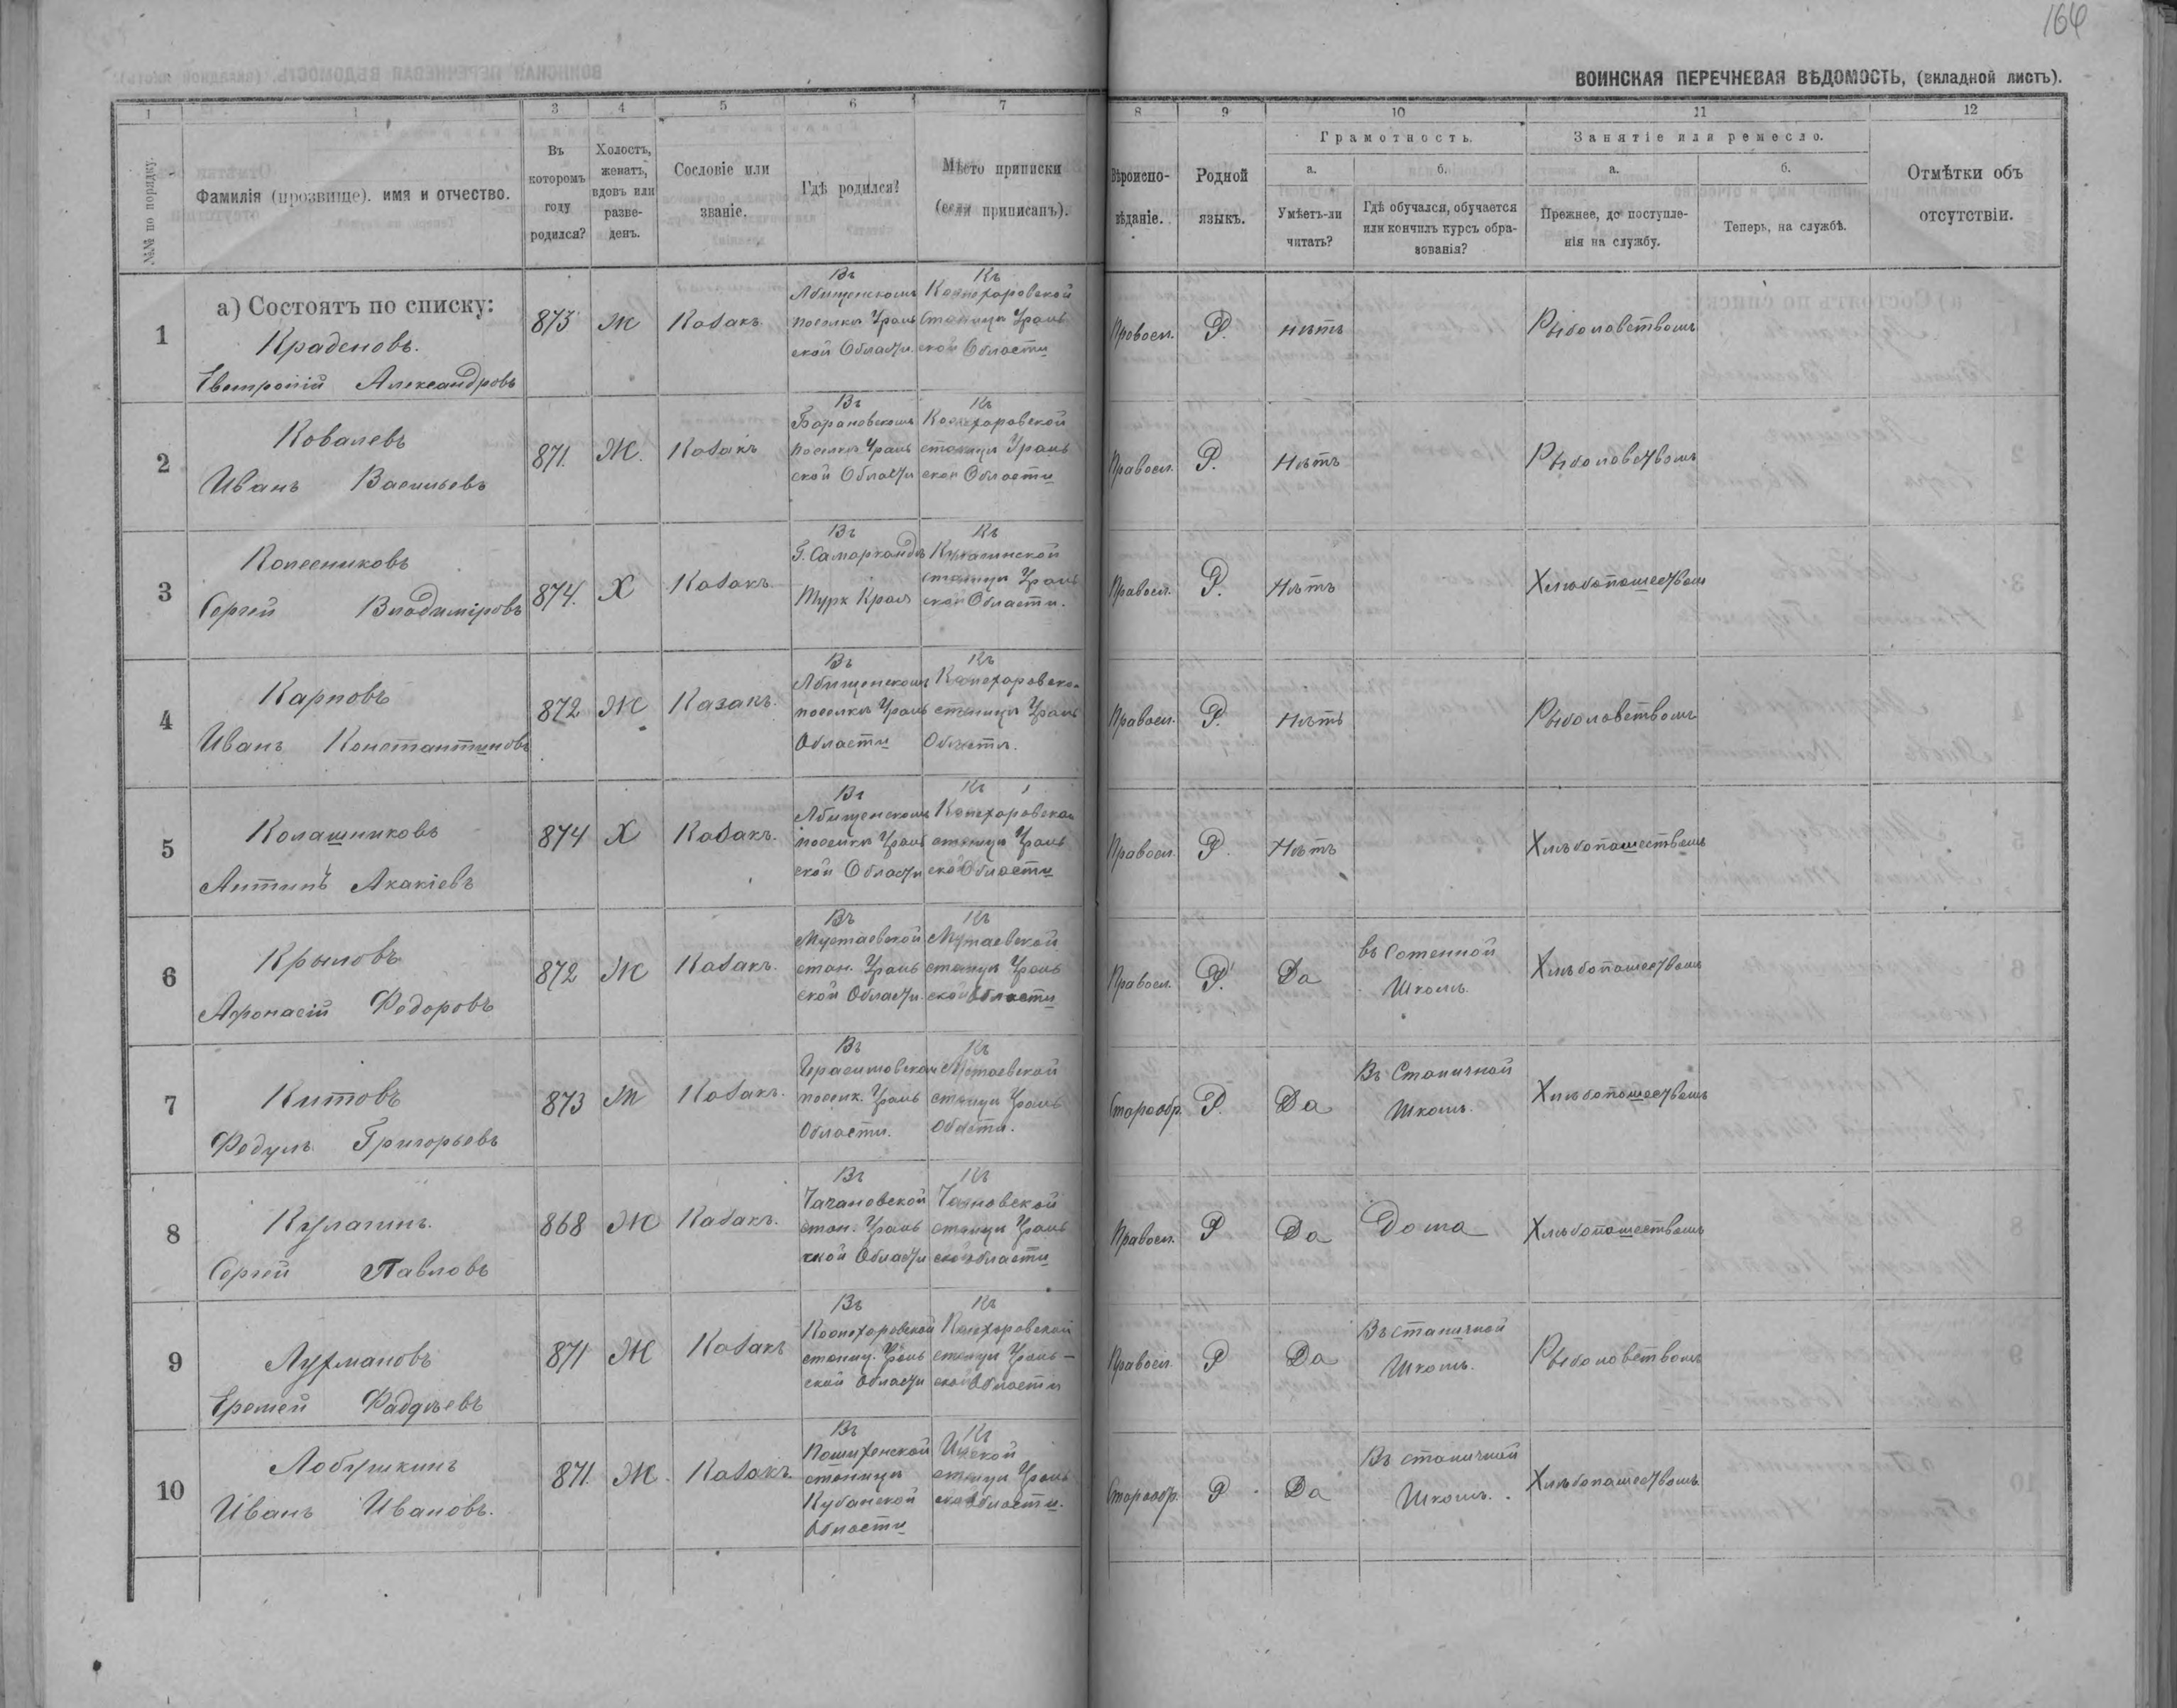 164
ВОИНСКАЯ ПЕРЕЧНЕВАЯ ВѢДОМОСТЬ, (вкладной листъ).
1 1 3 4 5 6 7 8 9 10 11 12
№№ по порядку.
Фамилія (прозвище). имя и отчество.
Въ которомъ году родился?
Холостъ, женатъ, вдовъ или разведенъ.
Сословіе или званіе.
Гдѣ родился?
Мѣсто приписки (если приписанъ).
Вѣроисповѣданіе.
Родной языкъ.
Грамотность.
а. Умѣетъ-ли читать?
б. Гдѣ обучался, обучается или кончилъ курсъ образованія?
Занятіе или ремесло.
а. Прежнее, до поступленія на службу.
б. Теперь, на службѣ.
Отмѣтки объ отсутствіи.
а) Состоятъ по списку:
1 Краденовъ. Евтропій Александровъ 873 Ж Казакъ. Въ поселкѣ Уральской Области. Къ станицѣ Уральской Области Православ. Р. нѣтъ Рыболовствомъ
2 Ковалевъ Иванъ Васильевъ 871. Ж. Казакъ Въ поселкѣ Уральской Области Къ станицѣ Уральской Области Правосл. Р. Нѣтъ Рыболовствомъ
3 Колесниковъ Сергей Владиміровъ 874. Х Казакъ. Въ Г. Самаркандѣ Турк Края Къ станицѣ Уральской Области. Правосл. Р. Нѣтъ Хлѣбопашеством
4 Карповъ Иванъ Константиновъ 872 Ж Казакъ. Въ поселкѣ Ураль Области Къ станицѣ Ураль Области. Правосл. Р. Нѣтъ Рыболовствомъ
5 Колашниковъ Антипъ Акакіевъ 874 Х Казакъ. Въ поселкѣ Уральской Области Къ станицѣ Уральской Области Правосл. Р. Нѣтъ Хлѣбопашествомъ
6 Крыловъ Афонасій Федоровъ 872 Ж Казакъ. Въ Мустаевской стан. Уральской Области. Къ станицѣ Уральской Области Правосл. Р. Да въ Сотенной Школѣ. Хлѣбопашествомъ
7 Китовъ Федулъ Григорьевъ 873 Ж Казакъ. Въ поселк. Ураль Области. Къ станицѣ Ураль Области. Старообр. Р. Да Въ Станичной Школѣ. Хлѣбопашествомъ
8 Кулагинъ. Сергей Павловъ 868 Ж Казакъ. Въ Чагановской стан. Уральской Области Къ станицѣ Уральской Области Правосл. Р Да Дома Хлѣбопашествомъ
9 Еремей Фаддѣевъ 871 Ж Казакъ Въ станиц. Уральской Области Къ станицѣ Уральской Области Правосл. Р Да Въ станичной Школѣ. Рыболовствомъ
10 Лобушкинъ Иванъ Ивановъ. 871. Ж. Казакъ. Въ станицѣ Кубанской Области Къ станицѣ Уральской Области. Старообр. Р Да Въ станичной Школѣ. Хлѣбопашествомъ.